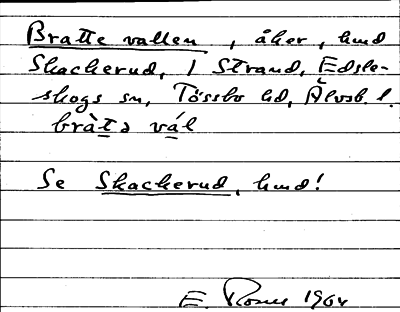 Bratte vallen, åker, hmd
Skackerud, 1 Strand, Edsle-
skogs sn, Tössbo hd, Älvsb. l.
bràtə vál
Se Skackerud, hmd!
E. 1964